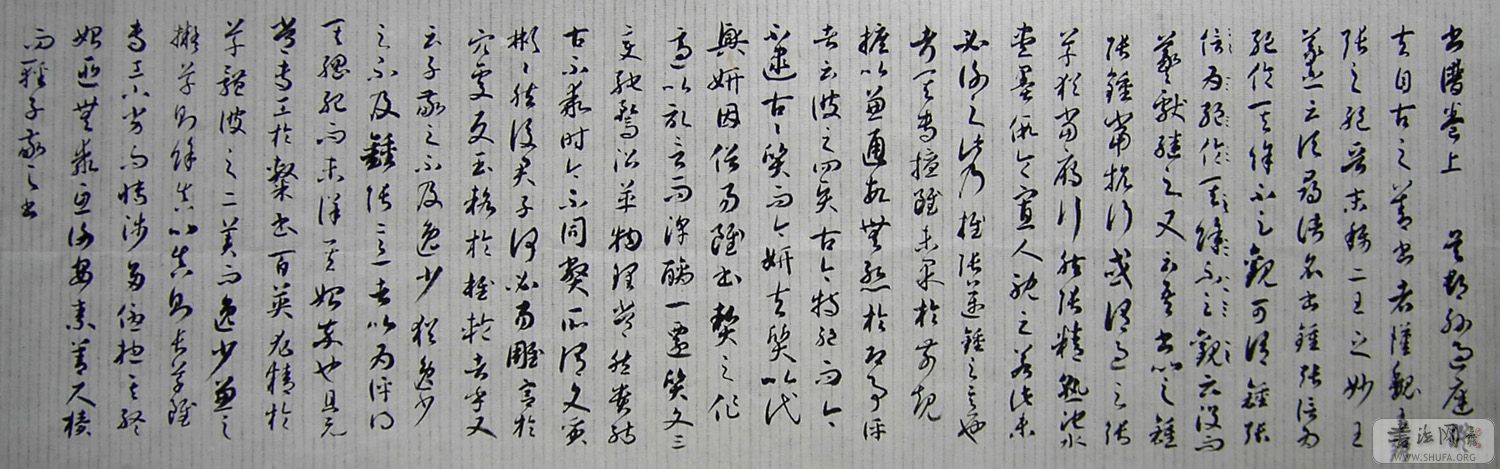 書譜卷上 吳郡孫過庭
夫自古之善書者漢魏有
張之絕晉末稱二王之妙王
羲之云頃尋諸名書鍾張信為
絕倫其餘不足觀可謂鍾張
信為絕倫其餘不足觀云沒而
羲獻繼之又云吾書比之鍾
張鍾當抗行或謂過之張
草猶當雁行然張精熟池水
盡墨假令寡人耽之若此未
必謝之此乃推張邁鍾之意也
考其專擅雖未果於前規
摭以兼通故無慚於即事評
者云彼之四賢古今特絕而今
不逮古古質而今妍夫質以代
興妍因俗易雖書契之作
適以記言而淳醨一遷質文三
變馳騖沿革物理常然貴能
古不乖時今不同弊所謂文質
彬彬然後君子何必易雕宮於
穴處反玉輅於椎輪者乎又
云子敬之不及逸少猶逸少
之不及鍾張意者以為評得
其綱紀而未詳其始卒也且元
常專工於隸書百英尤精於
草體彼之二美而逸少兼之
擬草則餘真比真則長草雖
專工小劣而博涉多優總其終
始匪無乖互謝安素善尺牘
而輕子敬之書
書法网
WWW.SHUFA.ORG